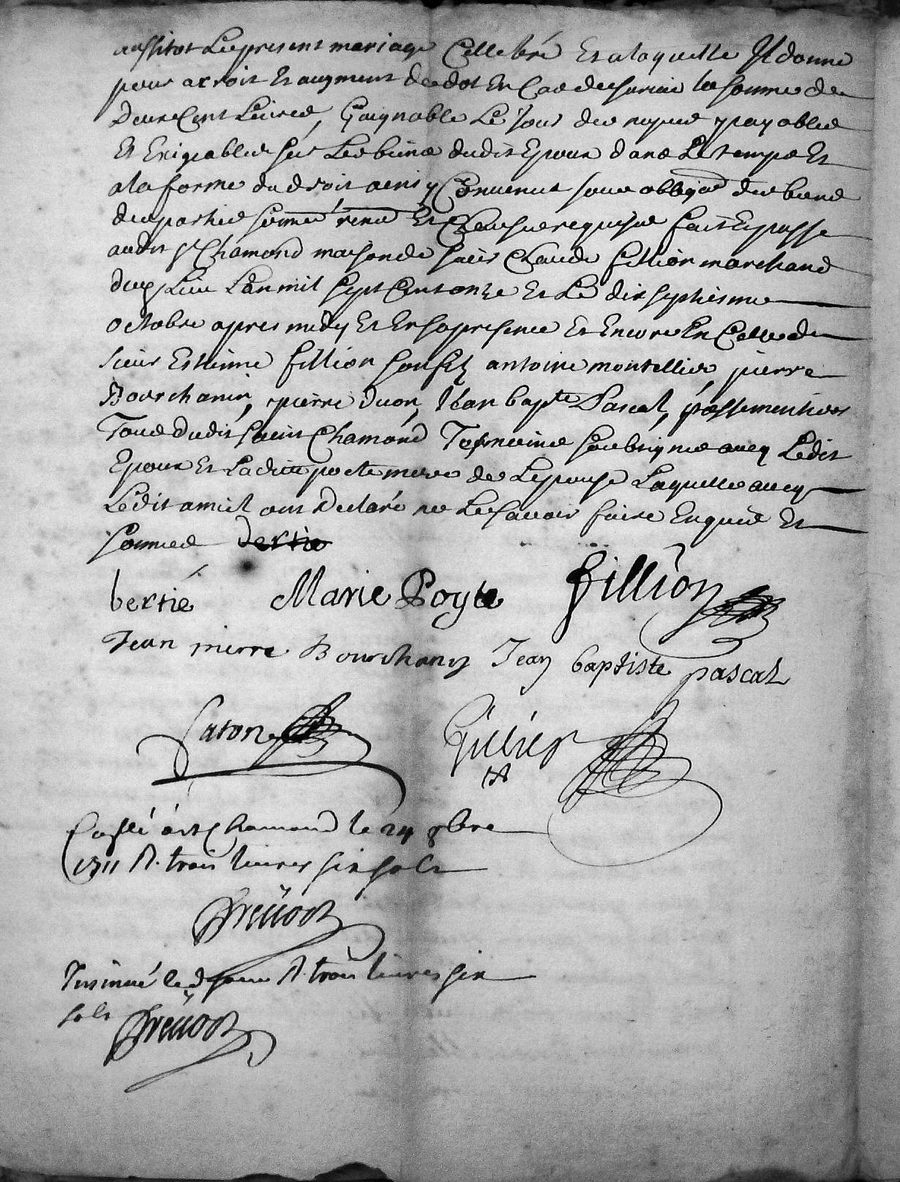 aussitot Le present mariage Cellebré Et a laquelle Il donne
pour acroit Et augment de dot En Cas de survie la somme de
Deux Cent Livres, Gaignable Le jour des nopces payable
Et Exigeable sur Les biens dudit Epoux dans Le temps Et
a la forme du droit ainsy Convenut sous obligaon des biens
des parties soumé rené Et Clausule requise fait Et passé
audit St Chamond maison de sieur Claude fillion marchand
dud Lieu Lan mil sept Cent onze Et Le dix septiesme
octobre apres midy Et En sa presence Et Encore En Celle de
sieur Estienne fillion son filz antoine montellier, pierre
Bourchanin, pierre duon, Jean bapte Pascal, passementiers
Tous dudit saint Chamond Tesmoins soubsignes avecq Ledit
Epoux Et Laditte poyte mere de Lepouse Laquelle avecq
Ledit amiel ont Declaré ne Le savoir faire Enquis Et
sommes bertié
bertié Marie Poyte fillion
Jean pierre Bourchany Jean baptiste pascal
Caton
Collé a St Chamond le 24 8bre
1711 R. trois livres six sols
Prevost
Insinué le d jour R. trois livres six
sols Prevost